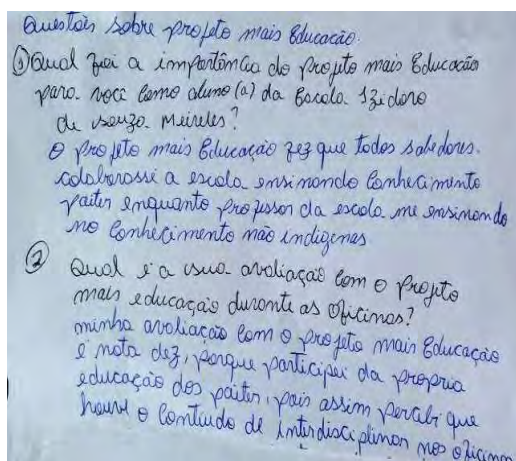 Questões sobre projeto mais Educação.
① Qual foi a importância do projeto mais Educação
para você como aluno (a) da Escola Izidoro
de souza Meireles?
O projeto mais Educação fez que todos sabedores.
colaborasse a escola ensinando conhecimento
paiter enquanto professor da escola me ensinando
no conhecimento não indígenas
② Qual é a sua avaliação com o Projeto
mais educação durante as oficinas?
minha avaliação com o projeto mais Educação
é nota dez, porque participei da propria
educação dos paiter, pois assim percebi que
houve o conteúdo de interdisciplinar nos oficinas